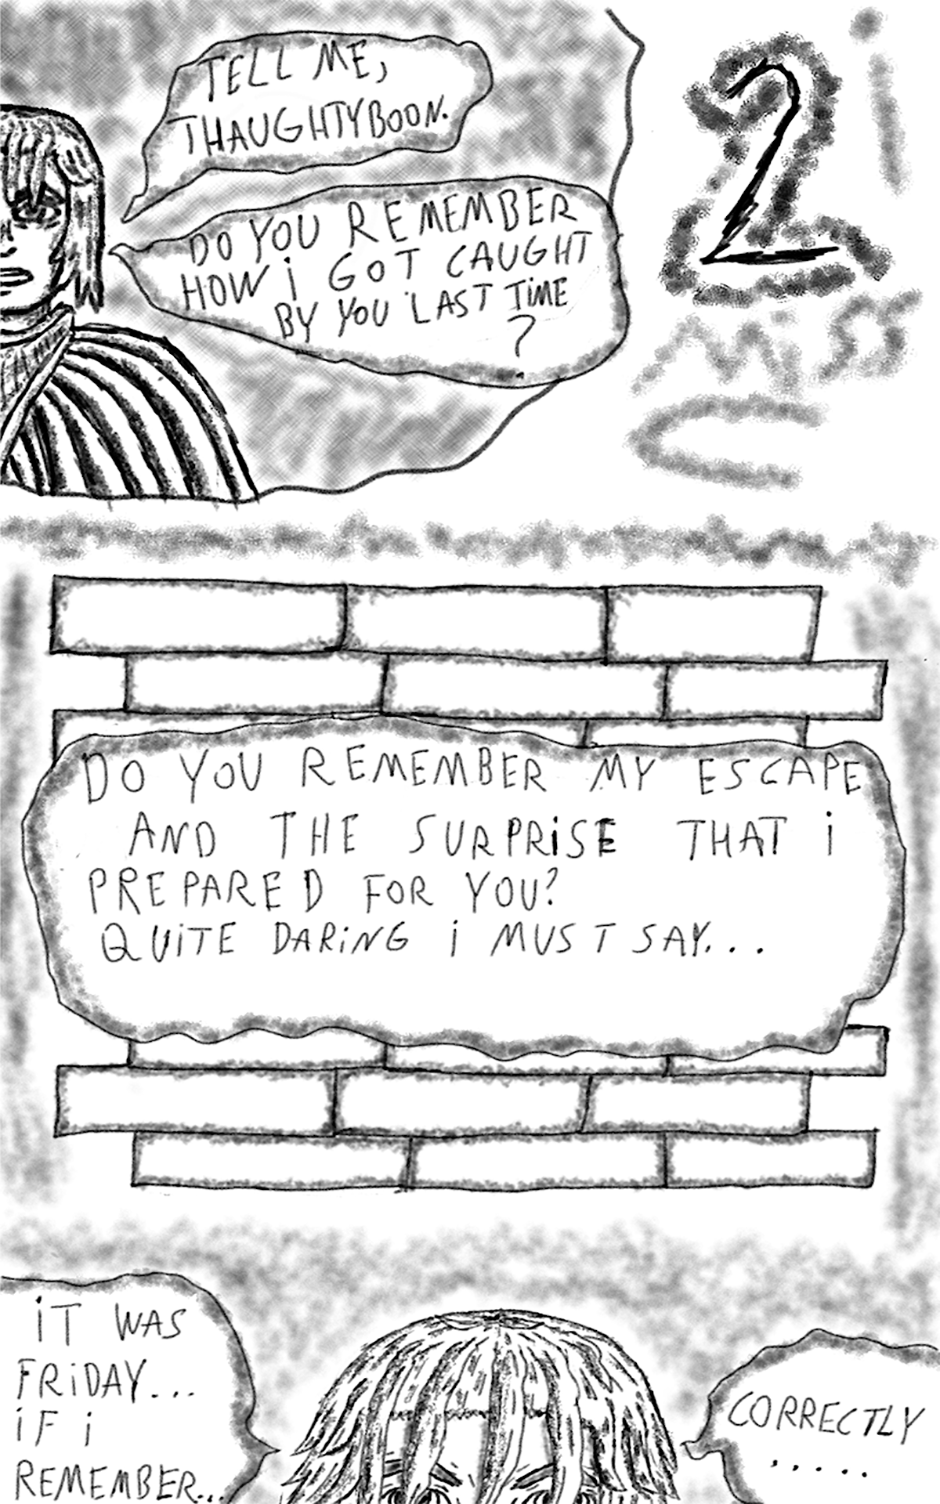 TELL ME,
THAUGHTYBOON.
DO YOU REMEMBER
HOW i GOT CAUGHT
BY YOU LAST TiME
?
2
i
MiSS
U
DO YOU REMEMBER MY ESCAPE
AND THE SURPRiSE THAT i
PREPARED FOR YOU?
QUiTE DARiNG i MUST SAY...
iT WAS
FRiDAY...
iF i
REMEMBER...
CORRECTLY
.....